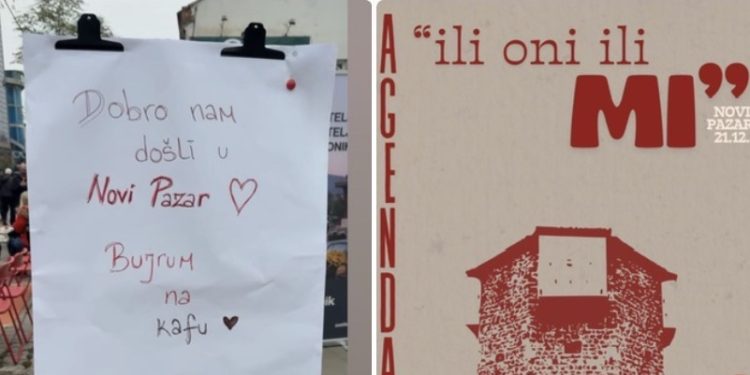 Dobro nam
došli u
Novi Pazar ♡
Bujrum
na
kafu ♥
AGENDA
“ili oni ili
MI”
NOVI
PAZAR
21.12.